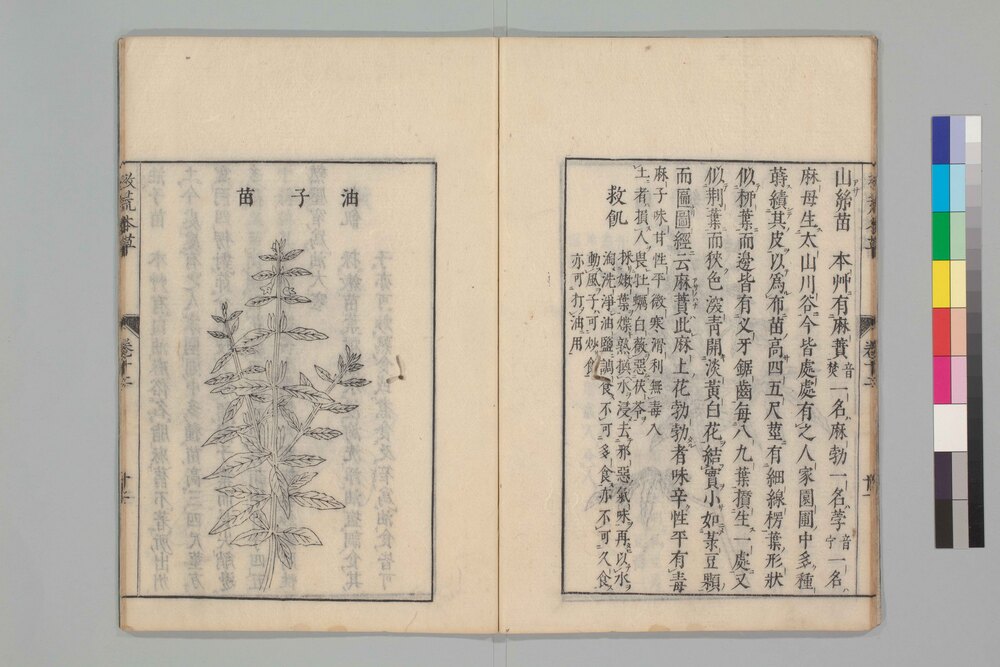 山絲苗 本艸有麻蕡 音焚 一名麻勃一名荸 音宁 一名
麻母生太山川谷今皆處處有之人家園圃中多種
蒔績其皮以爲布苗高四五尺莖有細線楞葉形狀
似栁葉而邊皆有叉牙鋸齒每八九葉攢生一處又
似荆葉而狹色淡靑開淡黃白花結實小如菉豆顆
而匾圖經云麻蕡此麻上花勃勃者味辛性平有毒
麻子味甘性平微寒滑利無毒入
土者損人畏牡蠣白薇惡茯苓
救飢
採嫩葉煠熟換水浸去邪惡氣味再以水
淘洗淨油鹽調食不可多食亦不可久食
動風子可炒食
亦可打油用
卷十二
油子苗
救荒本草
卷十二